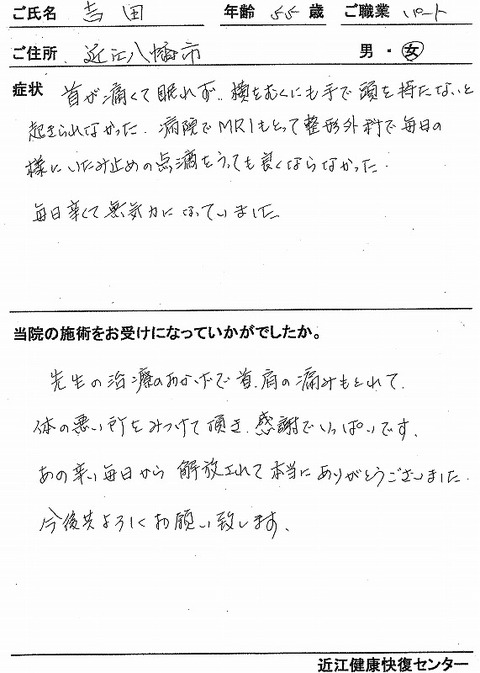 ご氏名 吉田 年齢 55 歳 ご職業 パート
ご住所 近江八幡市 男・女
症状 首が痛くて眠れず、横をむくにも手で頭を持たないと
起きられなかった。病院でMRIもとって整形外科で毎日の
様にいたみ止めの点滴をうっても良くならなかった。
毎日辛くて無気力になっていました。
当院の施術をお受けになっていかがでしたか。
先生の治療のおかげで首、肩の痛みもとれて、
体の悪い所をみつけて頂き、感謝でいっぱいです。
あの辛い毎日から解放されて本当にありがとうございました。
今後共よろしくお願い致します。
近江健康快復センター